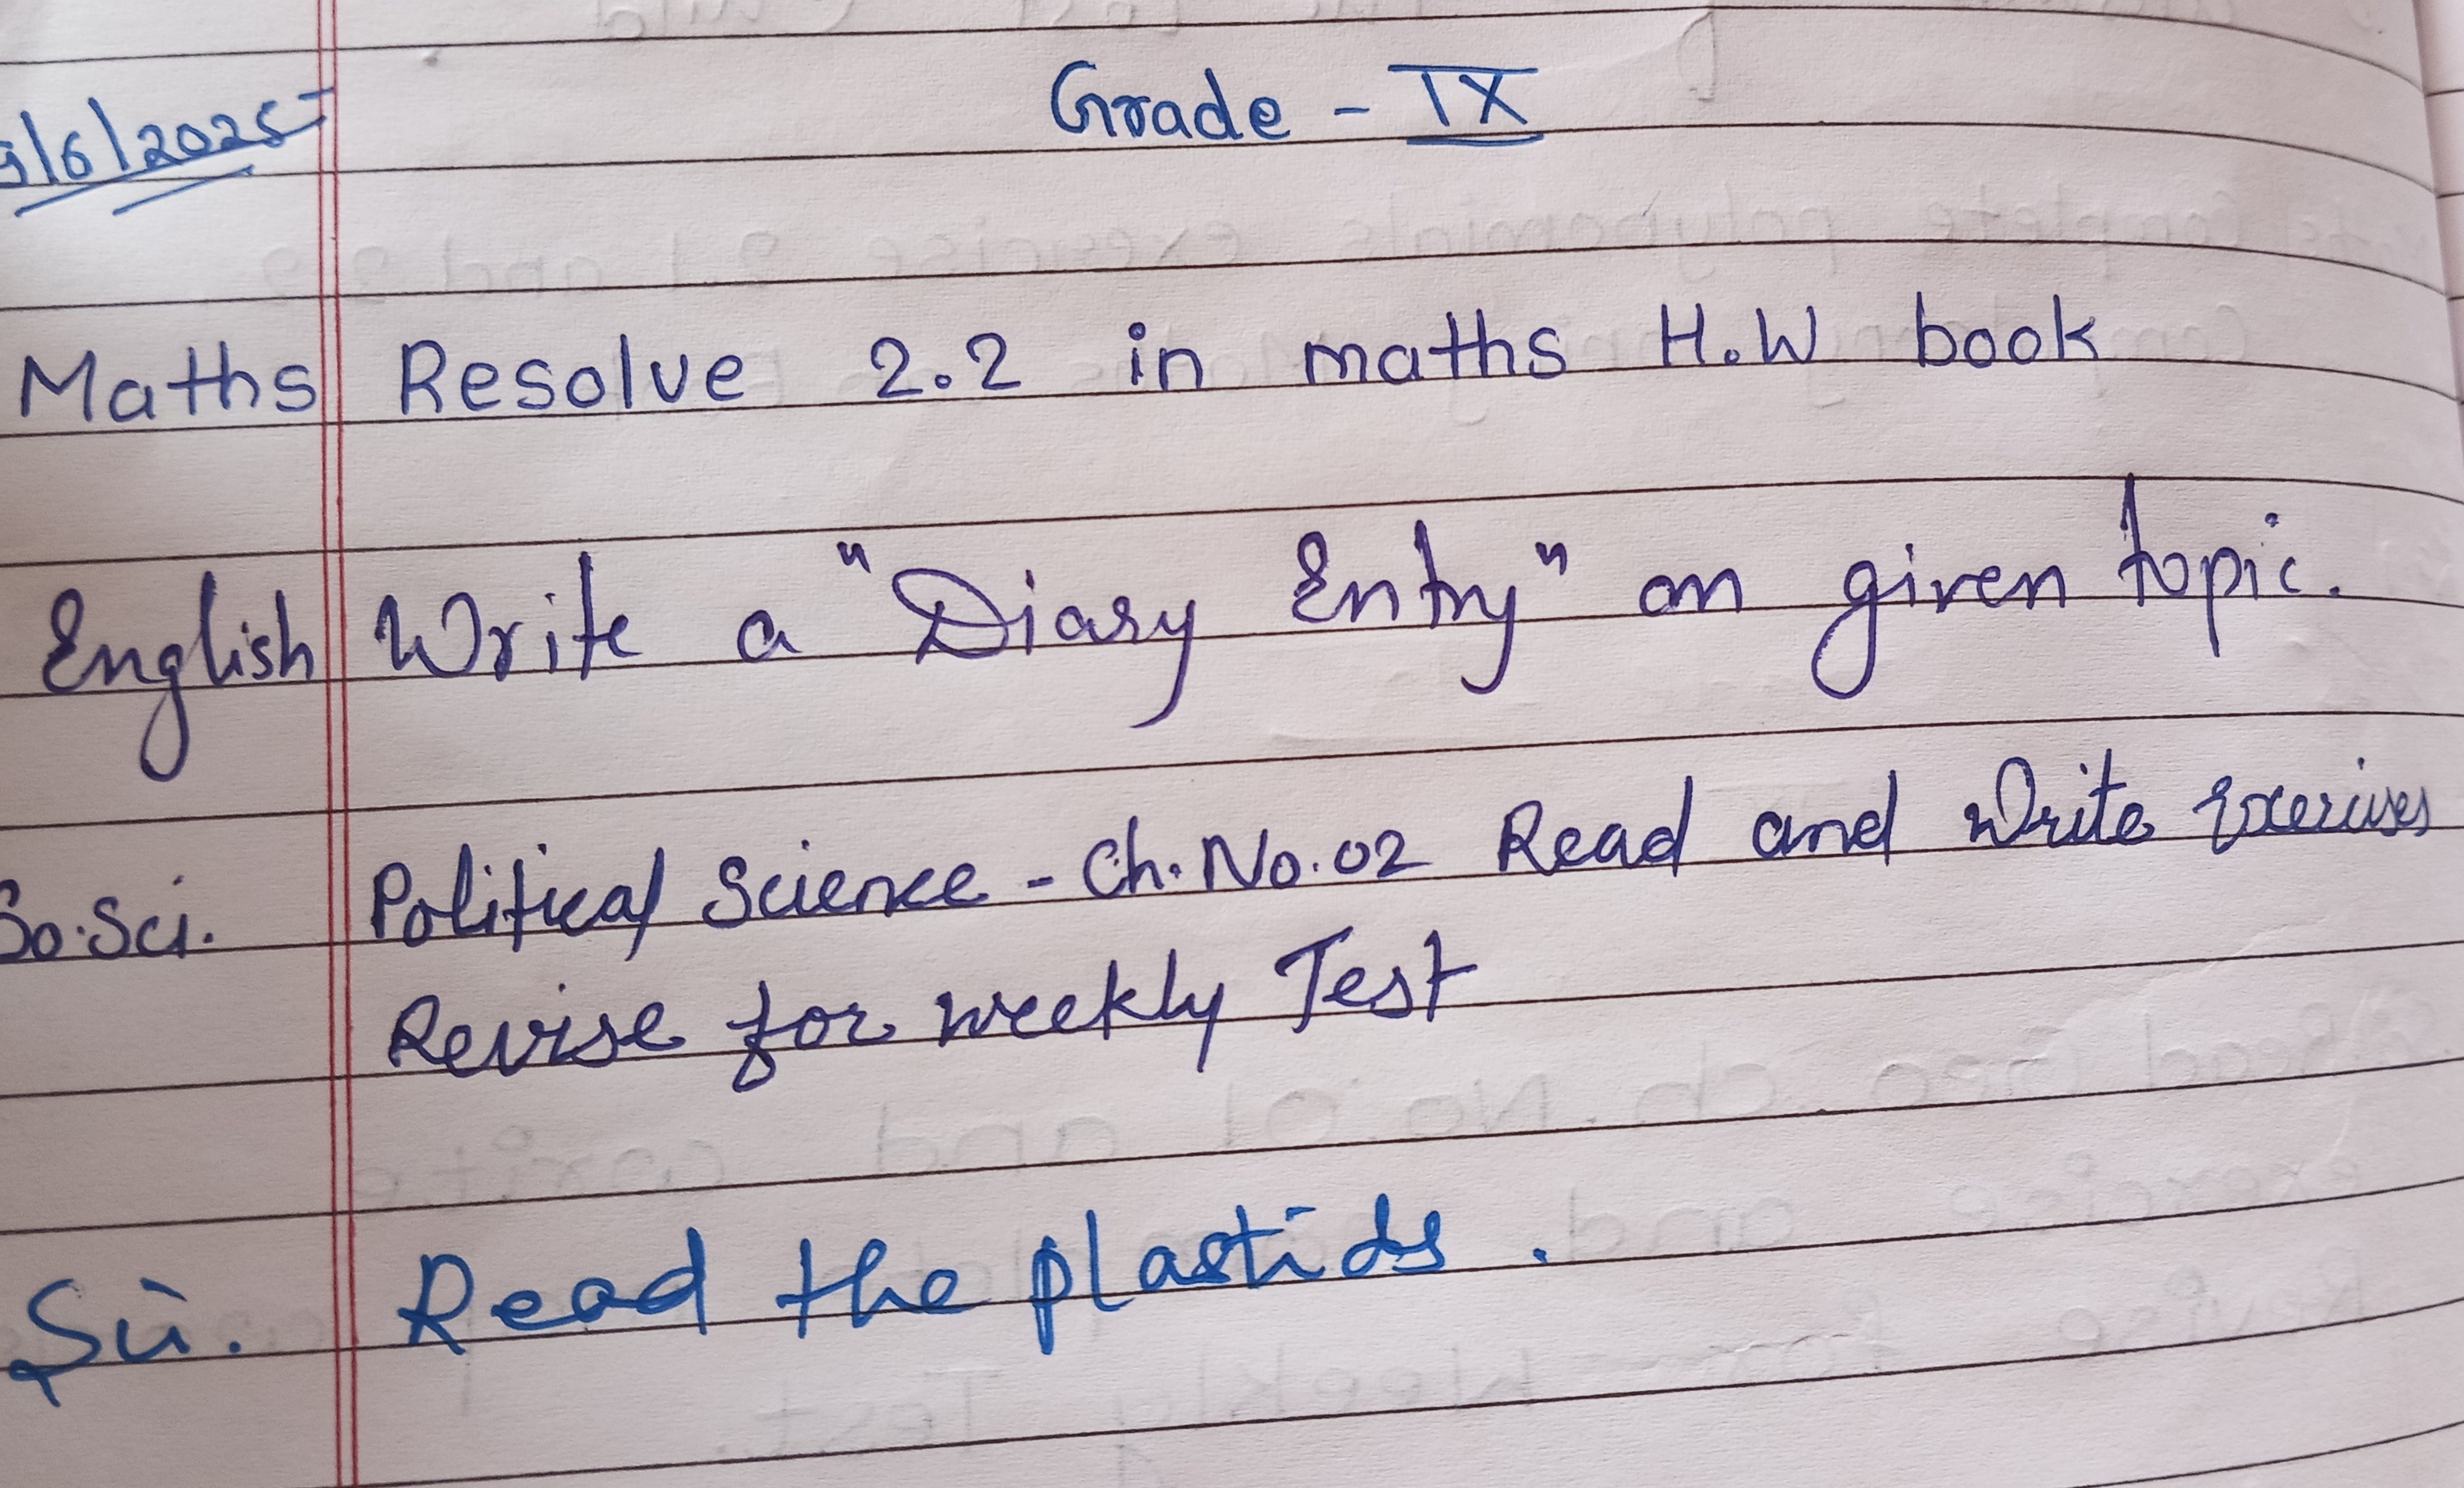 Grade - IX
/6/2025
Maths Resolve 2.2 in maths H.W book
English Write a "Diary Entry" on given topic.
So.Sci. Political Science - Ch. No. 02 Read and Write Exercises
Revise for weekly Test
Sci. Read the plastids.